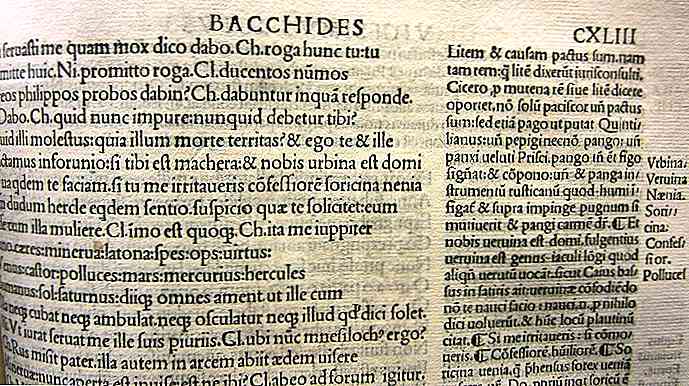 BACCHIDES
CXLIII
seruasti me quam mox dico dabo.Ch.roga hunc tu:tu
mitte huic.Ni.promitto roga.Cl.ducentos nūmos
eos philippos probos dabin?Ch.dabuntur inquā responde.
Dabo.Ch.quid nunc impure:nunquid debetur tibi?
uid illi molestus:quia illum morte territas?& ego te & ille
ctamus inforunio:si tibi est machera:& nobis urbina est domi
ua qdem te faciam.si tu me irritaueris cōfessiorē soricina nenia
n dudum hercle eqdem sentio.suspicio quæ te solicitet:eum
e cum illa muliere.Cl.imo est quoq.Ch.ita me iuppiter
no.cæres:minerua:latona:spes:ops:uirtus:
mus:castor:polluces:mars:mercurius:hercules
manus:sol:saturnus:diiq omnes ament ut ille cum
cubat neq ambulat.neq osculatur neq illud qd' dici solet.
iurat seruat me ille suis piuriis.Cl.ubi nūc mnesilochꝰ ergo?
Rus misit pater.illa autem in arcem abiit ædem uisere
nuncaperta est inuisere ne ibi?Ch.abeo ad forum igitur,
Litem & causam pactus sum.nam
tam rem:q litē dixerūt iurisconsulti.
Cicero,p murena rē siue litē dicere
oportet,nō solū paciscor uñ pactus
sum:sed etiā pago ut putat Quinti
lianus:uñ pepigi:neenō pango:uñ
panxi ueluti Prisci.pango iñ ēt figo
signat:& cōpono:uñ & panga in
strumentū rusticanū quod humi
figat & supra impinge pugnum si
mutiuerit & pangi carmē dr̄.⁋ Et
nobis ueruina est domi.fulgentius
ueruina est genus iaculi lōgi quod
aliqñ uerutū uocāt.sicut Caius bas
sus in satiris ait:ueruinæ cōfodiēdo
nō te nauci facio:nauci.i.p nihilo
dici uoluerūt.& huc locū plautinū
citat.⁋ Si me irritaueris:i.cōmo
ueris.⁋ Cōfessiorē,huiliorē.⁋ So
ricina nenia.q phensus sorex uenia
Vrbina,
Veruina
Nænia.
Sori
cina.
Confes
sior.
Polluces